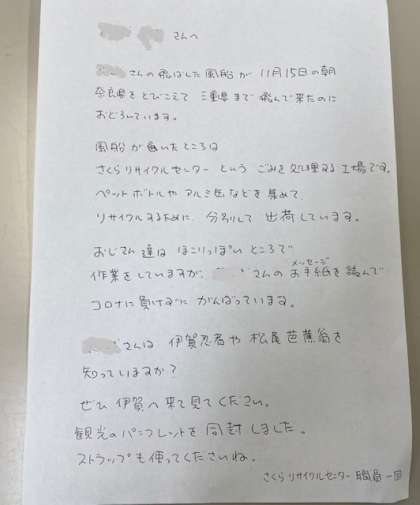 さんへ
さんの飛ばした風船が11月15日の朝
奈良県をとびこえて三重県まで飛んで来たのに
おどろいています。
風船が着いたところは
さくらリサイクルセンターというごみを処理する工場です。
ペットボトルやアルミ缶などを集めて
リサイクルするために、分別して出荷しています。
おじさん達はほこりっぽいところで
作業をしていますが、さんのお手紙を読んで
メッセージ
コロナに負けずにがんばっています。
さんは伊賀忍者や松尾芭蕉翁を
知っていますか?
ぜひ伊賀へ来て見てください。
観光のパンフレットを同封しました。
ストラップも使ってくださいね。
さくらリサイクルセンター職員一同